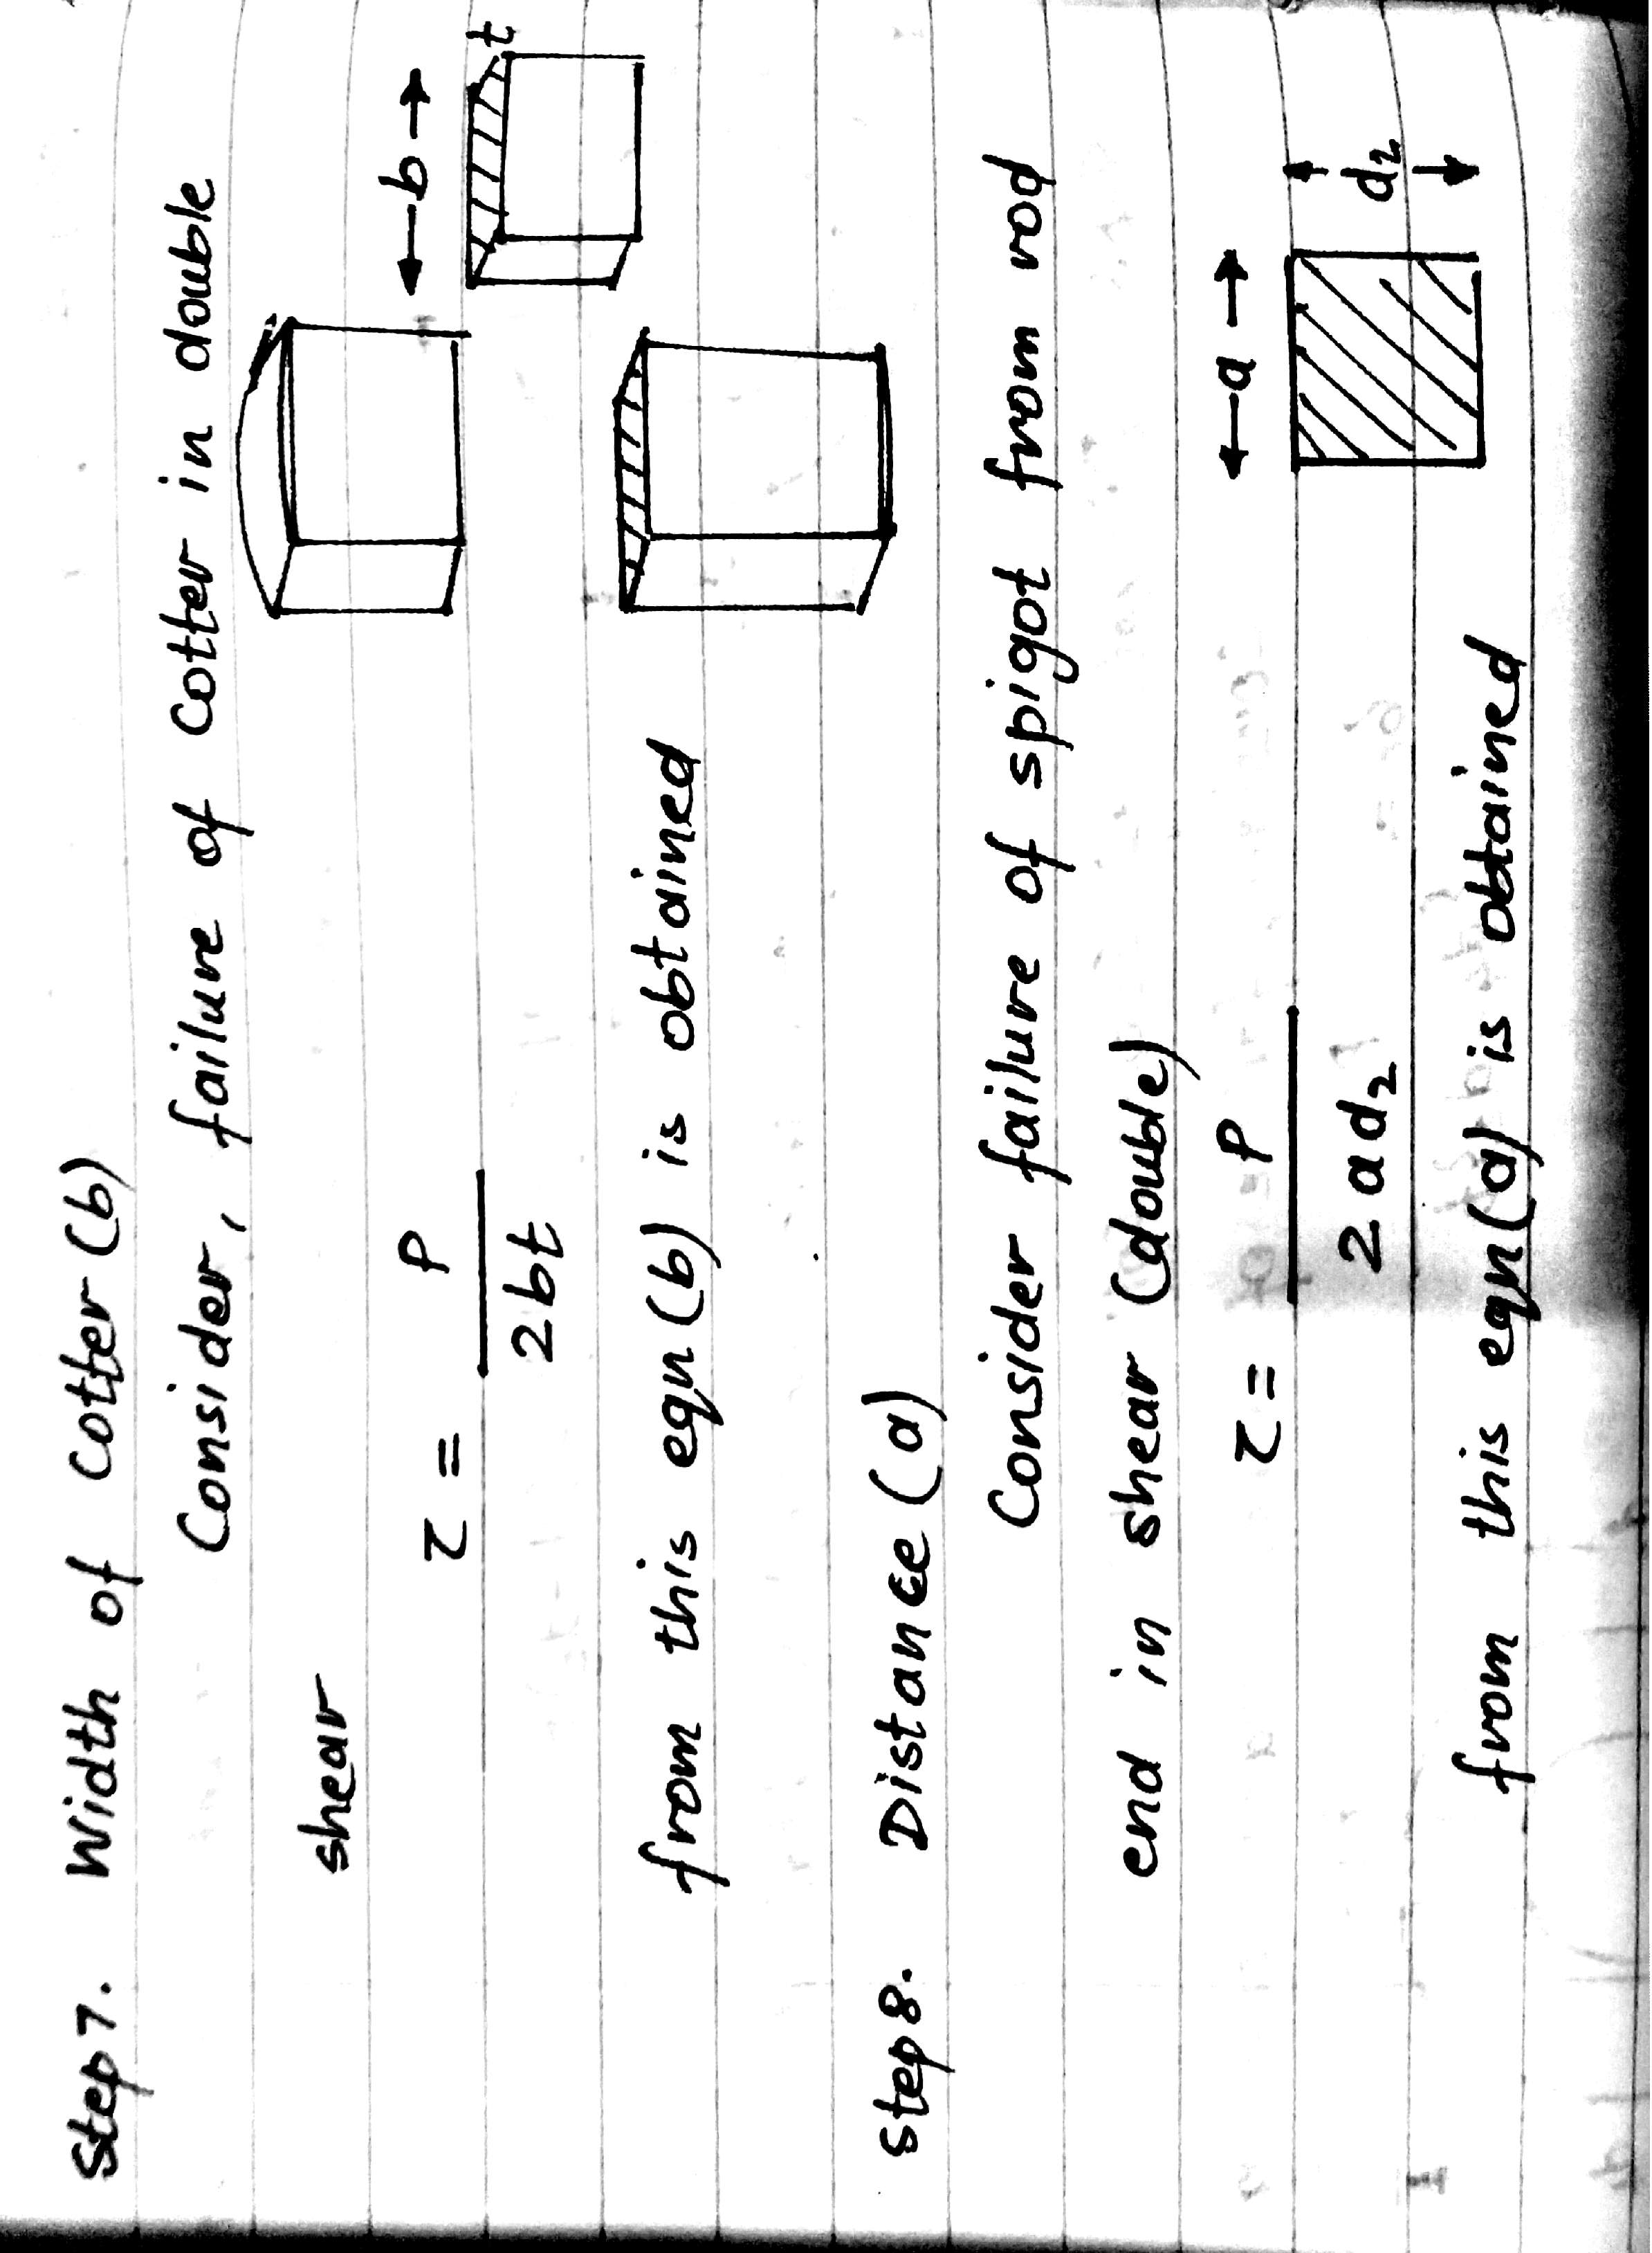 Step 7. Width of Cotter (b)
Consider, failure of Cotter in double
shear
τ = P / 2bt
b
t
from this eqn (b) is obtained
Step 8. Distance (a)
Consider failure of spigot from rod
end in shear (double)
τ = P / 2ad₂
a
d₂
from this eqn (a) is obtained